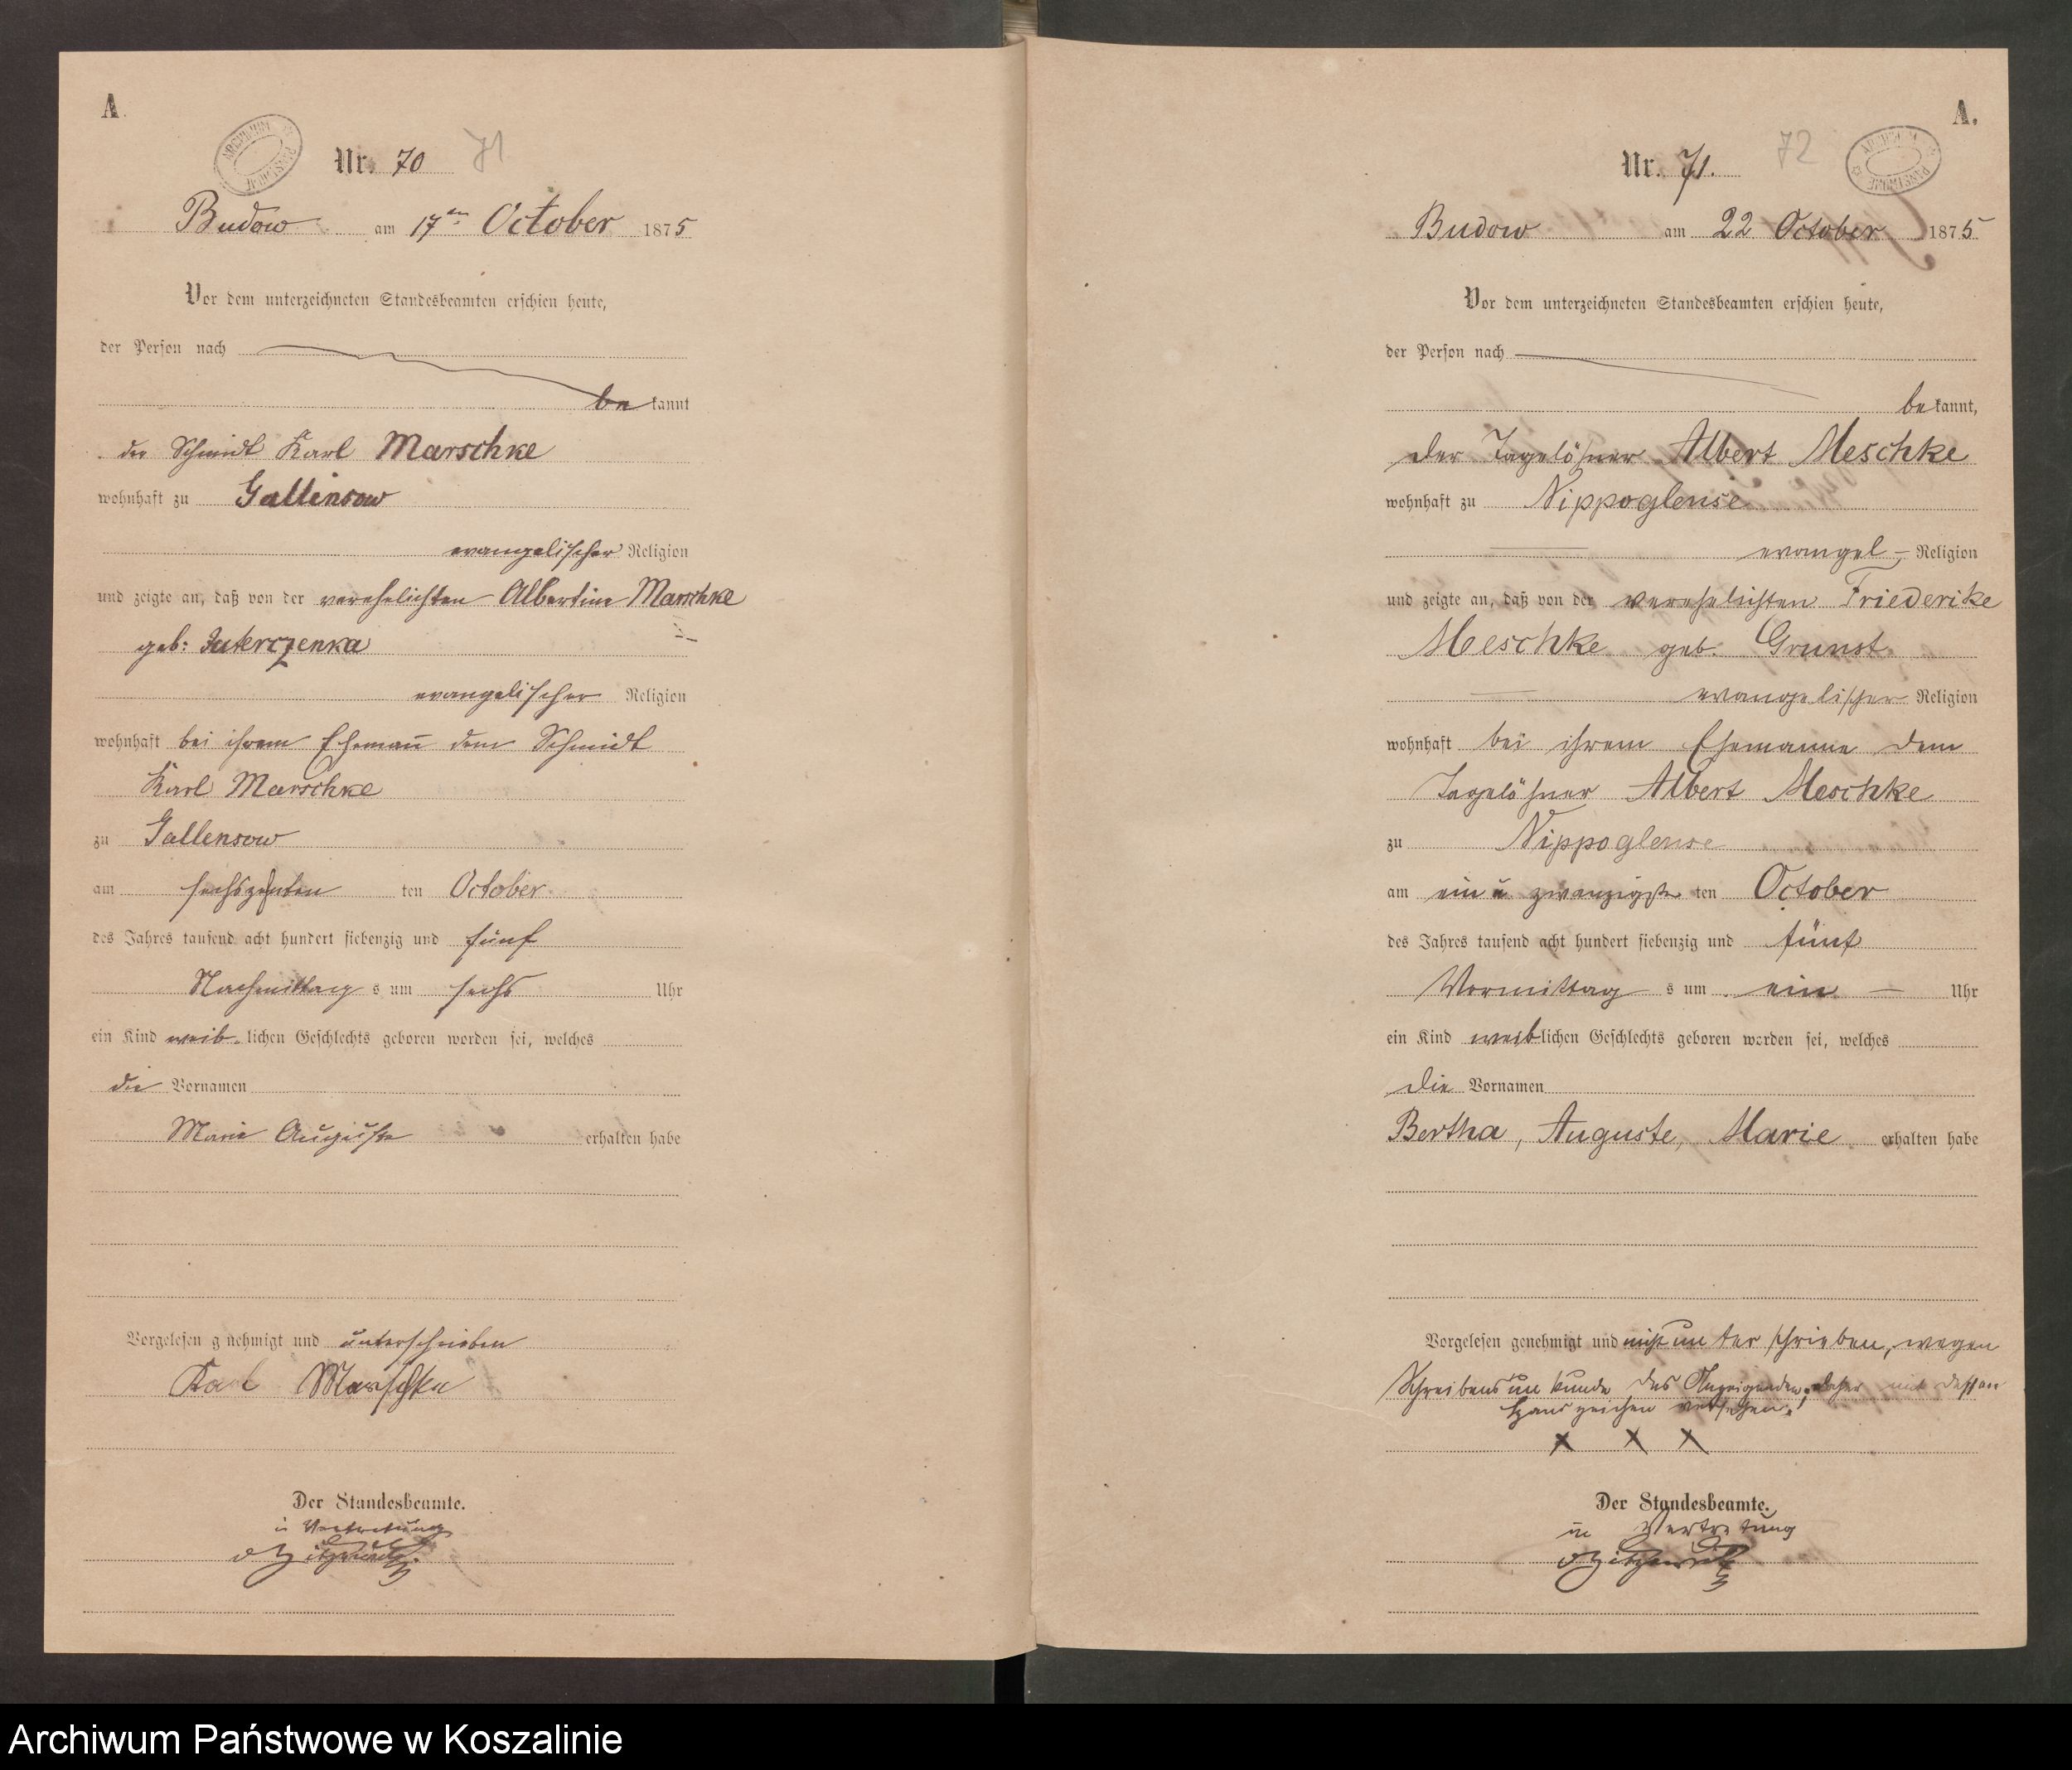 A.
ARCHIWUM PAŃSTWOWE
Nr. 70 71
Budow am 17ten October 1875
Vor dem unterzeichneten Standesbeamten erschien heute,
der Person nach
bekannt
der Schmidt Karl Marschke
wohnhaft zu Gallensow
evangelischer Religion
und zeigte an, daß von der verehelichten Albertine Marschke
geb:
evangelischer Religion
wohnhaft bei ihrem Ehemañ dem Schmidt
Karl Marschke
zu Gallensow
am sechszehnten ten October
des Jahres tausend acht hundert siebenzig und fünf
Nachmittag s um sechs Uhr
ein Kind weib lichen Geschlechts geboren worden sei, welches
die Vornamen
Marie Auguste erhalten habe
Vorgelesen g nehmigt und unterschrieben
Karl Marschke
Der Standesbeamte.
in Vertretung
v Zitzewitz
A.
72
ARCHIWUM PAŃSTWOWE
Nr. 71.
Budow am 22 October 1875
Vor dem unterzeichneten Standesbeamten erschien heute,
der Person nach
bekannt,
der Tagelöhner Albert Meschke
wohnhaft zu Nippoglense
evangel Religion
und zeigte an, daß von der verehelichten Friederike
Meschke geb. Grunst
evangelischer Religion
wohnhaft bei ihrem Ehemanne dem
Tagelöhner Albert Meschke
zu Nippoglense
am ein u zwanzigste ten October
des Jahres tausend acht hundert siebenzig und fünf
Vormittag s um ein Uhr
ein Kind weiblichen Geschlechts geboren worden sei, welches
die Vornamen
Bertha, Auguste, Marie erhalten habe
Vorgelesen genehmigt und nicht unterschrieben, wegen
Schreibensunkunde des Anzeigenden, daher mit dessen
Handzeichen versehen.
x x x
Der Standesbeamte.
in Vertretung
v Zitzewitz
Archiwum Państwowe w Koszalinie